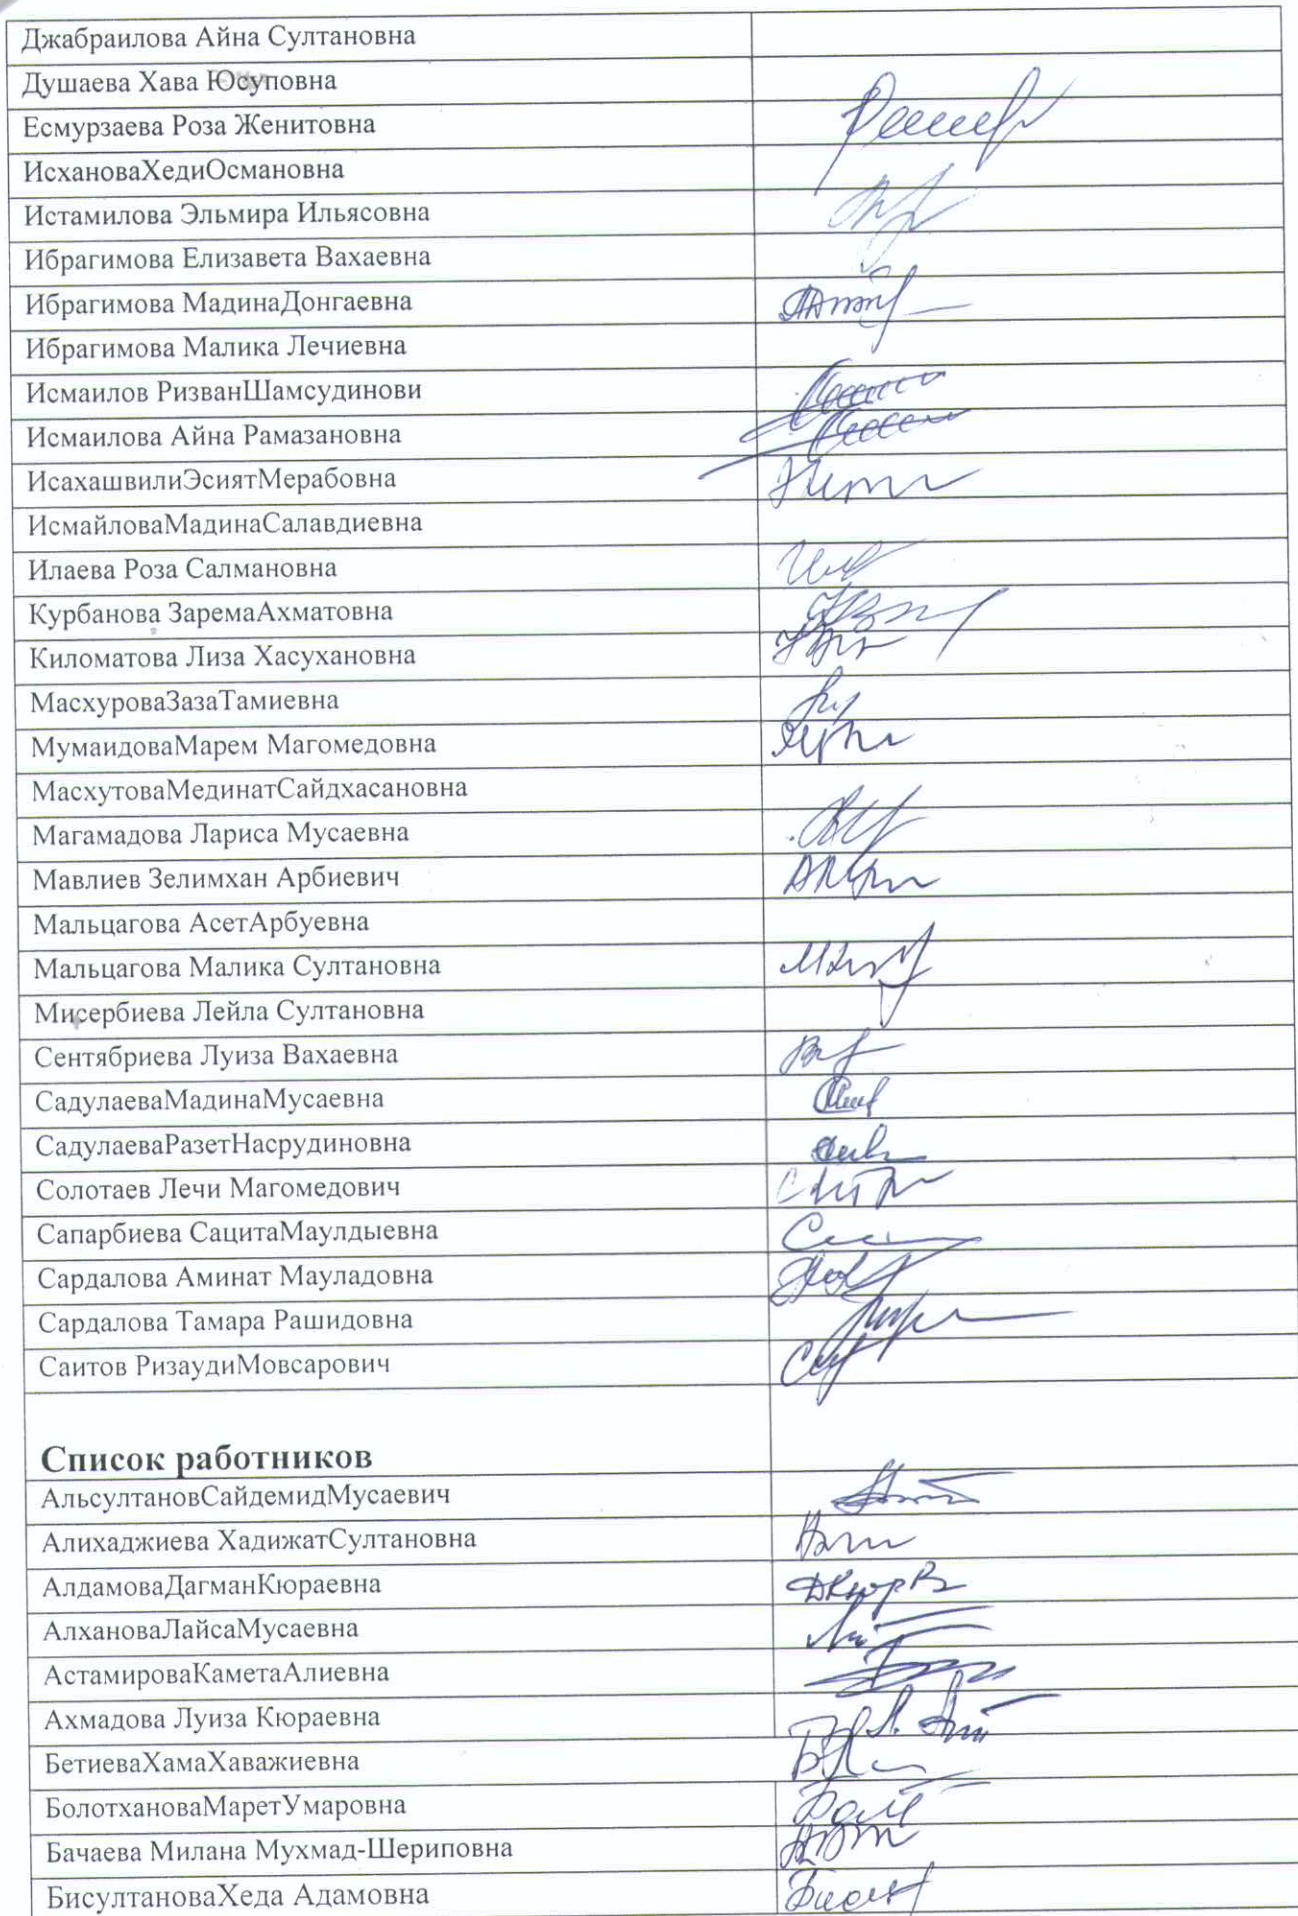 Джабраилова Айна Султановна
Душаева Хава Юсуповна
Есмурзаева Роза Женитовна
ИсхановаХедиОсмановна
Истамилова Эльмира Ильясовна
Ибрагимова Елизавета Вахаевна
Ибрагимова МадинаДонгаевна
Ибрагимова Малика Лечиевна
Исмаилов РизванШамсудинови
Исмаилова Айна Рамазановна
ИсахашвилиЭсиятМерабовна
ИсмайловаМадинаСалавдиевна
Илаева Роза Салмановна
Курбанова ЗаремаАхматовна
Киломатова Лиза Хасухановна
МасхуроваЗазаТамиевна
МумаидоваМарем Магомедовна
МасхутоваМединатСайдхасановна
Магамадова Лариса Мусаевна
Мавлиев Зелимхан Арбиевич
Мальцагова АсетАрбуевна
Мальцагова Малика Султановна
Мисербиева Лейла Султановна
Сентябриева Луиза Вахаевна
СадулаеваМадинаМусаевна
СадулаеваРазетНасрудиновна
Солотаев Лечи Магомедович
Сапарбиева СацитаМаулдыевна
Сардалова Аминат Мауладовна
Сардалова Тамара Рашидовна
Саитов РизаудиМовсарович
Список работников
АльсултановСайдемидМусаевич
Алихаджиева ХадижатСултановна
АлдамоваДагманКюраевна
АлхановаЛайсаМусаевна
АстамироваКаметаАлиевна
Ахмадова Луиза Кюраевна
БетиеваХамаХаважиевна
БолотхановаМаретУмаровна
Бачаева Милана Мухмад-Шериповна
БисултановаХеда Адамовна